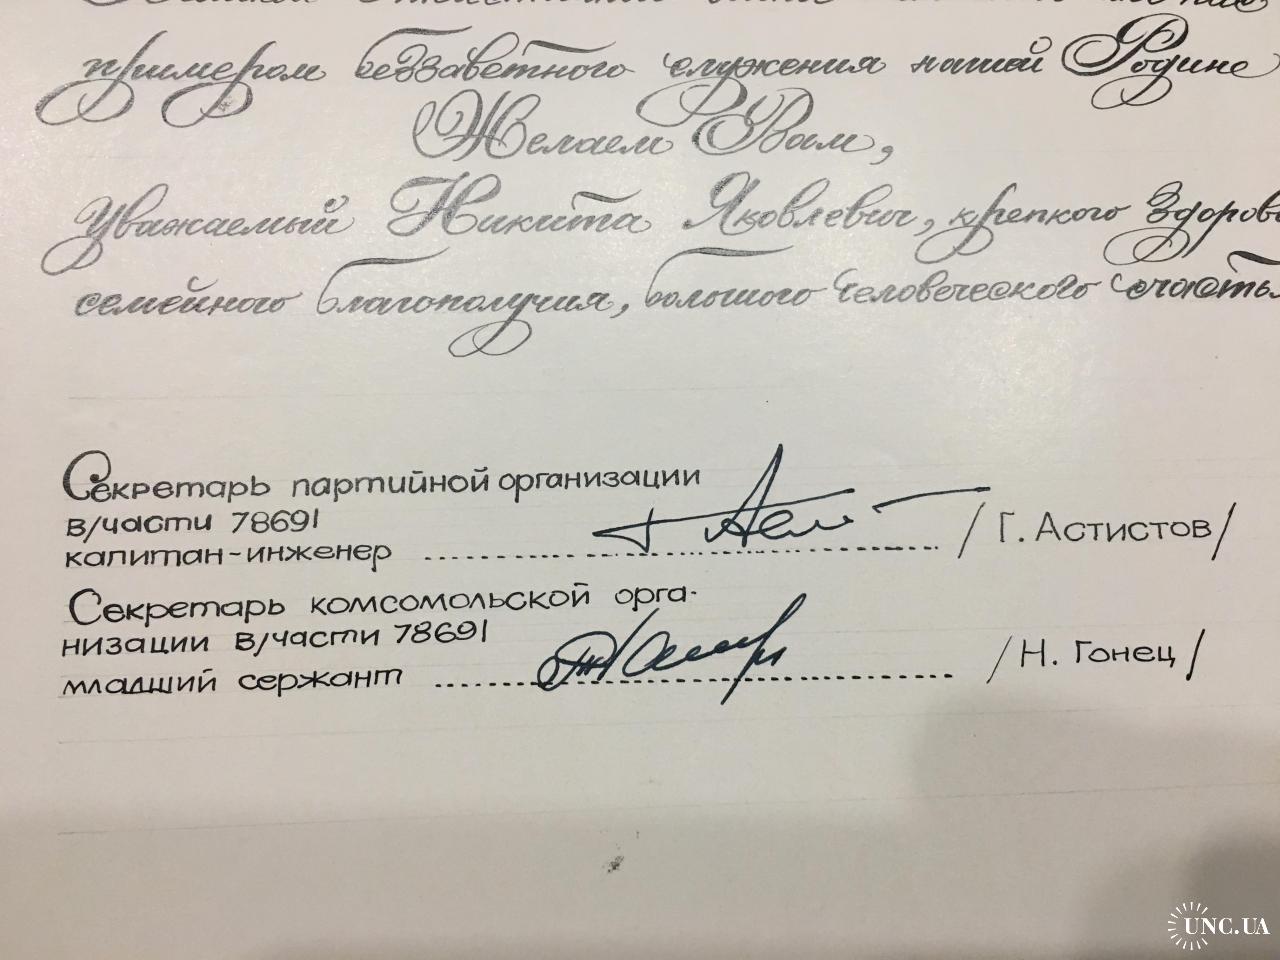 примером беззаветного служения нашей Родине
Желаем Вам,
Уважаемый Никита Яковлевич, крепкого здоровь
семейного благополучия, большого человеческого счасть
Секретарь партийной организации
в/части 78691
капитан-инженер /Г. Астистов/
Секретарь комсомольской орга-
низации в/части 78691
младший сержант /Н. Гонец/
UNC.UA